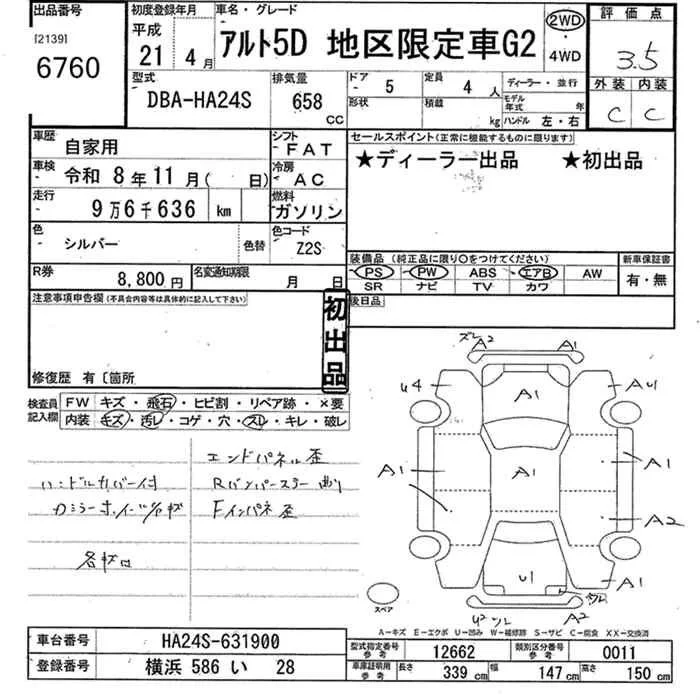 出品番号
[2139]
6760
初度登録年月
平成
21 4月
車名・グレード
アルト5D 地区限定車G2
2WD
・
4WD
評価点
3.5
外装 内装
C C
型式
DBA-HA24S
排気量
658 CC
ドア 5
形状
定員 4 人
積載 kg
ディーラー・並行
モデル年式 年
ハンドル 左・右
車歴 自家用
シフト FAT
車検 令和 8年 11月( 日)
冷房 AC
走行 9万6千636 km
燃料 ガソリン
色 シルバー 色替
色コード Z2S
R券 8,800円
名変通知期限 月 日
セールスポイント(正常に機能するものに限ります)
★ディーラー出品 ★初出品
装備品(純正品に限り○をつけてください)
PS PW ABS エアB AW
SR ナビ TV カワ
新車保証書
有・無
後日品
注意事項申告欄(不具合内容等は具体的に記入して下さい)
初出品
修復歴 有〔箇所
検査員記入欄
FW キズ・飛石・ヒビ割・リペア跡・×要
内装 キズ・汚レ・コゲ・穴・スレ・キレ・破レ
エンドパネル歪
ハンドルカバー付
各キズ凹
ズレ A2 A1
U4 A1 AU
A1 A1 A1
A2
U1 A1
U2 A2
スペア
A-キズ E-エクボ U-凹み W-補修跡 S-サビ C-腐食 XX-交換済
車台番号 HA24S-631900
登録番号 横浜 586 い 28
型式指定番号 参考 12662
類別区分番号 参考 0011
車庫証明用 参考 長さ 339 cm 幅 147 cm 高さ 150 cm